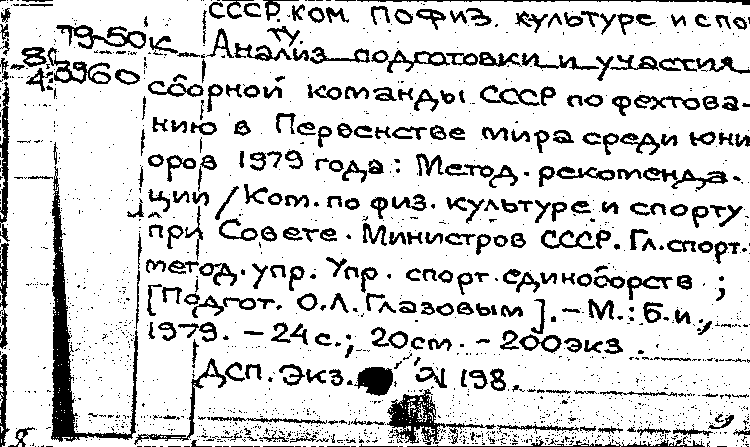 СССР. Ком. по физ. культуре и спо
ту.
79-50к
Анализ подготовки и участия
8
4
3960
сборной команды СССР по фехтова-
нию в Первенстве мира среди юни
оров 1979 года: Метод. рекоменда-
ции / Ком. по физ. культуре и спорту
при Совете. Министров СССР. Гл. спорт.
метод. упр. Упр. спорт. единоборств ;
[Подгот. О.Л. Глазовым]. – М.: Б.и.,
1979. – 24 с.; 20 см. – 200 экз.
ДСП. Экз. № 198.